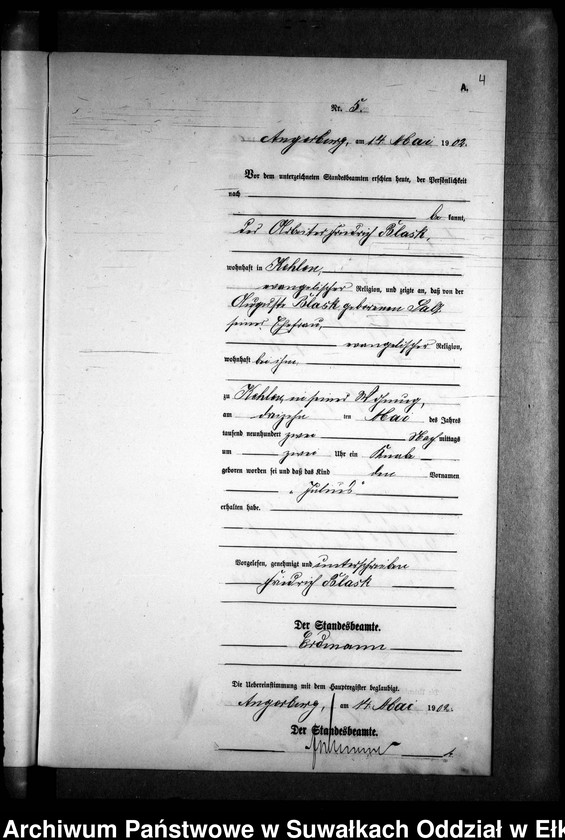 4
A.
Nr. 5.
Angerburg, am 14 Mai 1902.
Vor dem unterzeichneten Standesbeamten erschien heute, der Persönlichkeit
nach
be kannt,
der Arbeiter Friedrich Blask,
wohnhaft in Kehlen,
evangelischer Religion, und zeigte an, daß von der
Auguste Blask geborenen
seiner Ehefrau,
evangelischer Religion,
wohnhaft bei ihm,
zu Kehlen, in seiner Wohnung,
am dreizehn ten Mai des Jahres
tausend neunhundert zwei Nach mittags
um zwei Uhr ein Knabe
geboren worden sei und daß das Kind den Vornamen
„Julius"
erhalten habe.
Vorgelesen, genehmigt und unterschrieben
Friedrich Blask
Der Standesbeamte.
Erdmann
Die Uebereinstimmung mit dem Hauptregister beglaubigt.
Angerburg, am 14 Mai 1902.
Der Standesbeamte.
Archiwum Państwowe w Suwałkach Oddział w Ełk